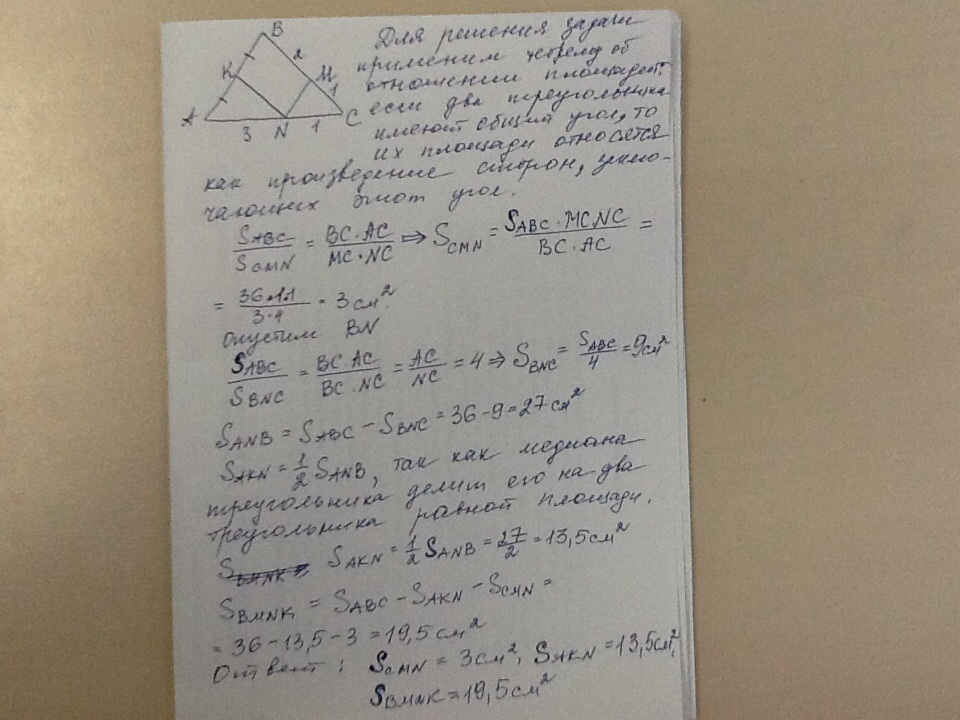 B
K
2
M
1
A
C
3
N
1
Для решения задачи
применим теорему об
отношении площадей:
если два треугольника
имеют общий угол, то
их площади относятся
как произведение сторон, заклю-
чающих этот угол.
S_ABC / S_CMN = BC·AC / MC·NC ⇒ S_CMN = S_ABC·MC·NC / BC·AC =
= 36·1·1 / 3·4 = 3 см².
Опустим BN
S_ABC / S_BNC = BC·AC / BC·NC = AC / NC = 4 ⇒ S_BNC = S_ABC / 4 = 9 см²
S_ANB = S_ABC − S_BNC = 36 − 9 = 27 см²
S_AKN = 1/2 S_ANB, так как медиана
треугольника делит его на два
треугольника равной площади.
S_BMNK = S_AKN = 1/2 S_ANB = 27/2 = 13,5 см²
S_BMNK = S_ABC − S_AKN − S_CMN =
= 36 − 13,5 − 3 = 19,5 см²
Ответ: S_CMN = 3 см², S_AKN = 13,5 см²,
S_BMNK = 19,5 см²